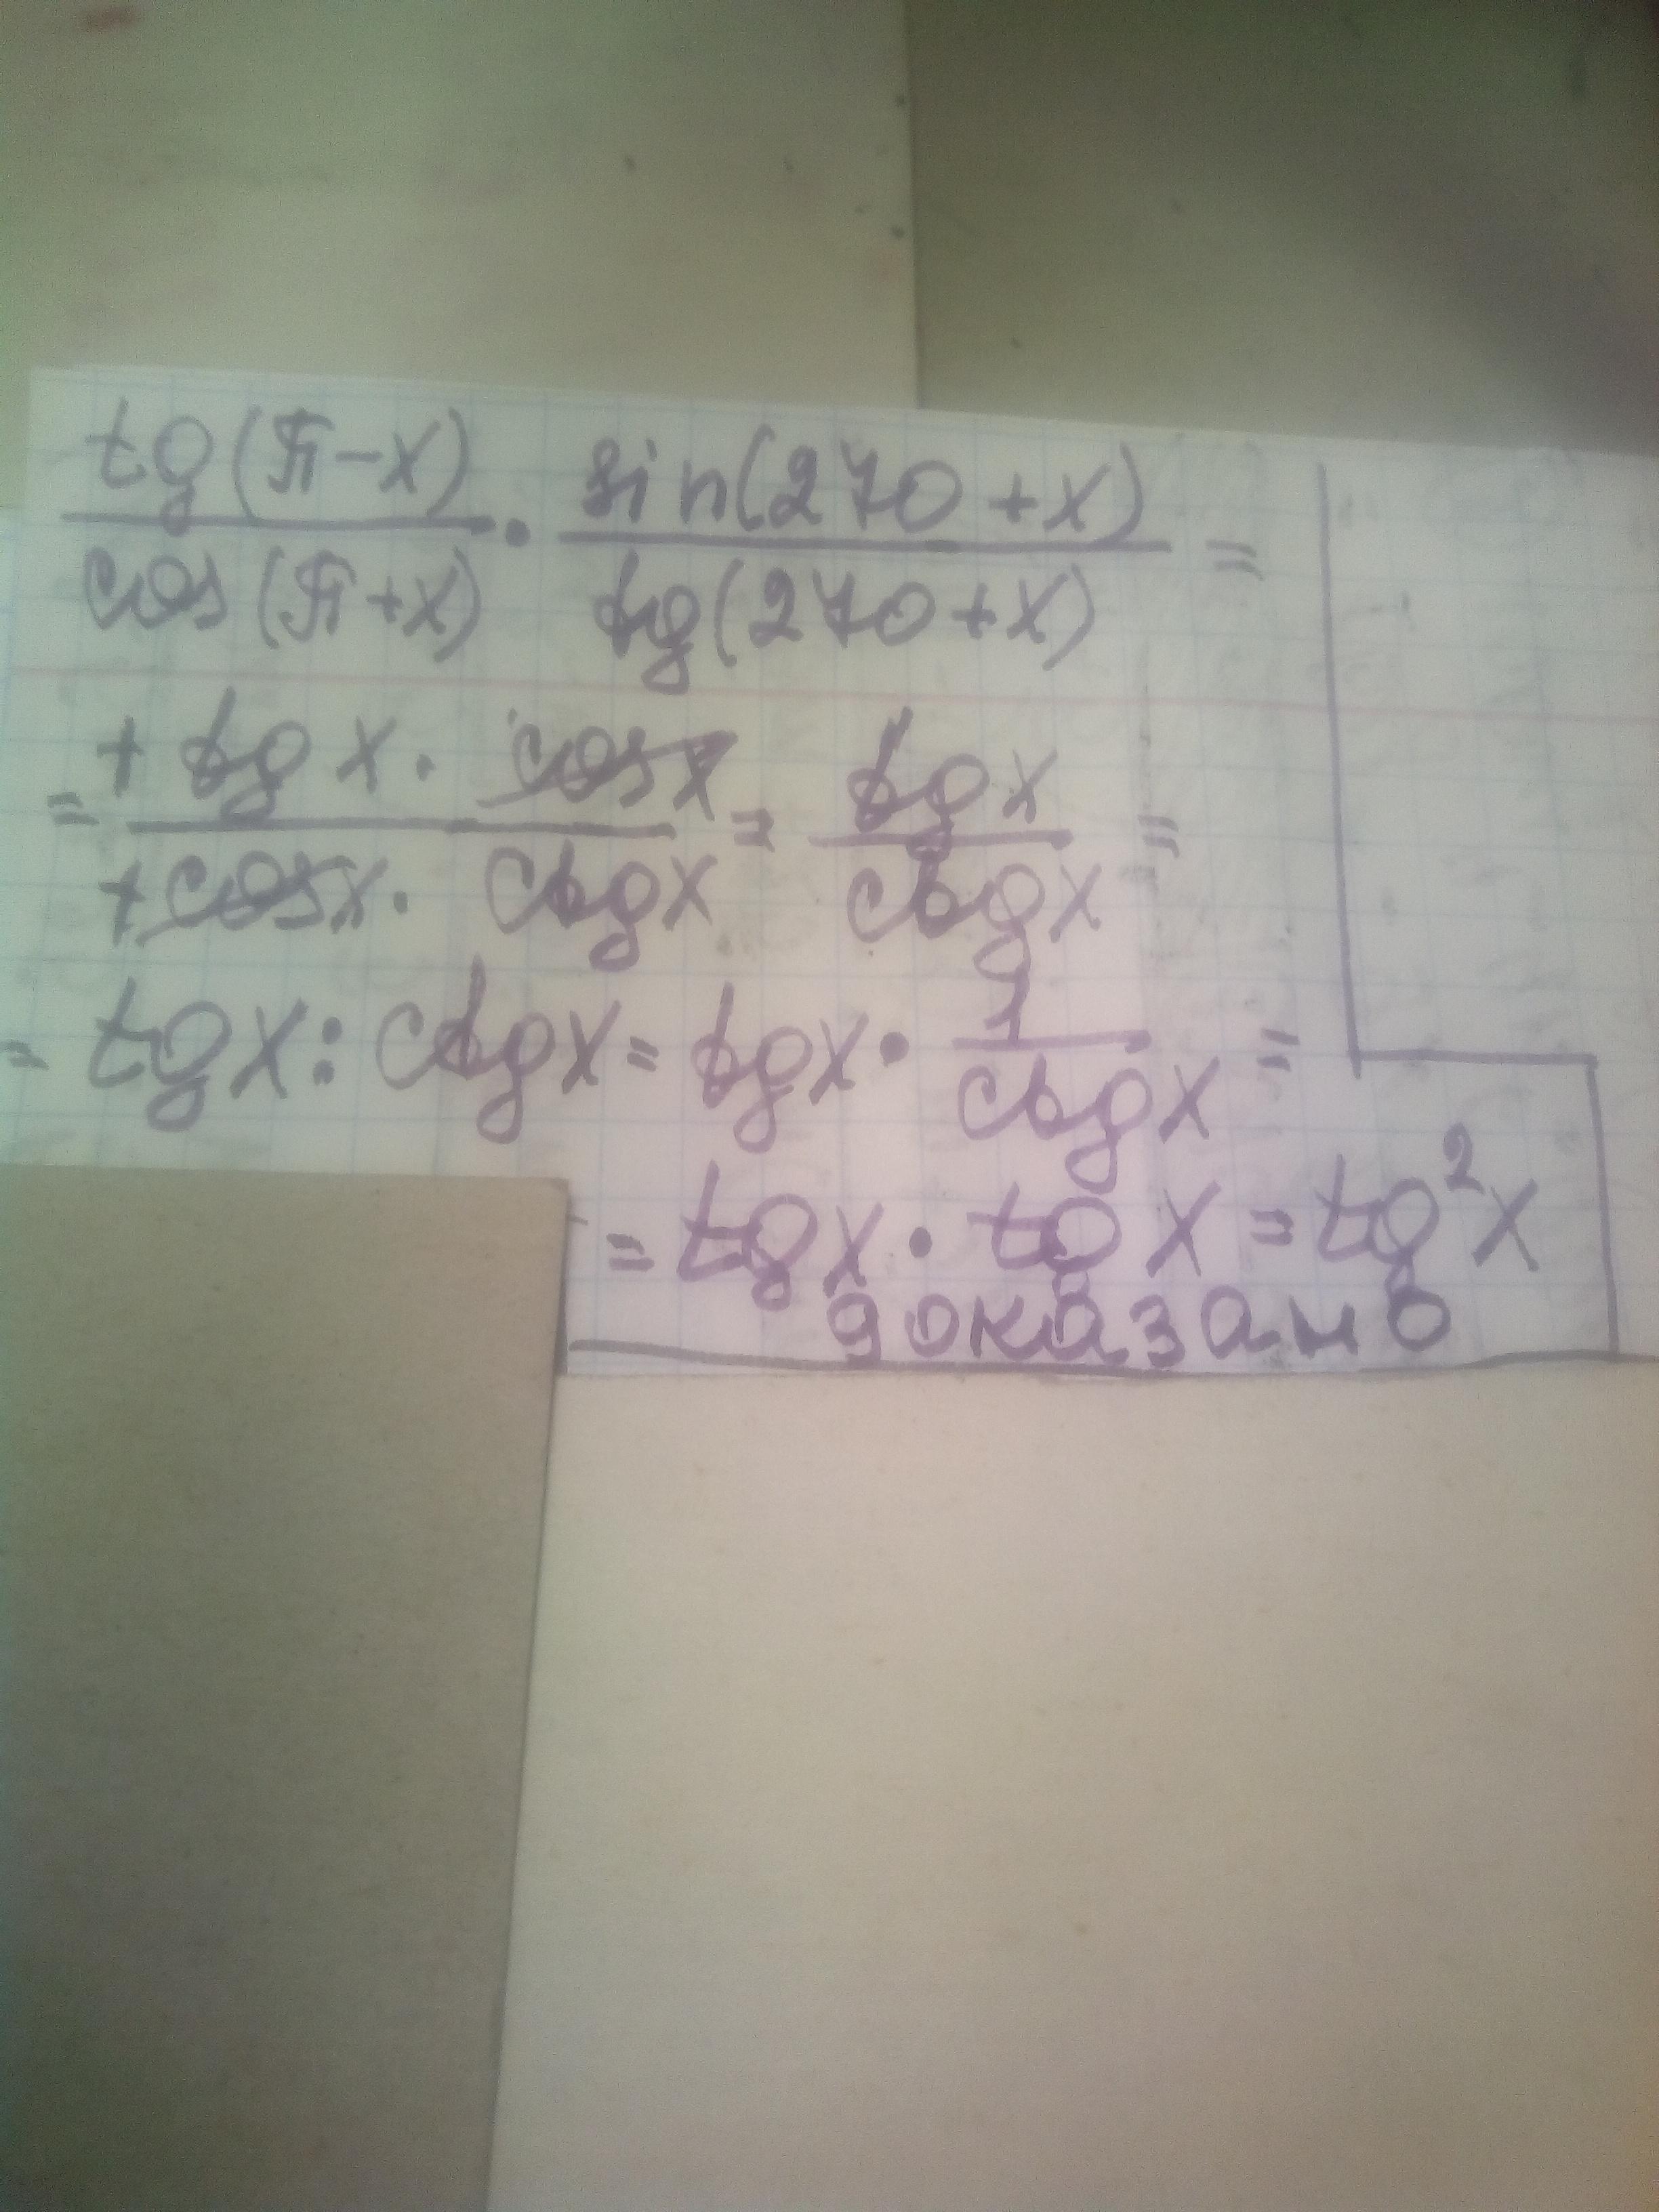 tg(π-x)/cos(π+x) · sin(270+x)/tg(270+x) =
= +tgx · cosx / +cosx · ctgx = tgx/ctgx =
= tgx : ctgx = tgx · 1/ctgx =
= tgx · tgx = tg²x
доказано